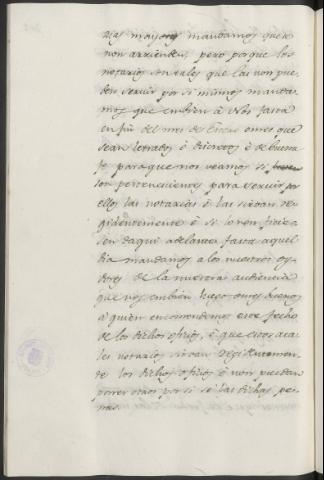 rias mayores mandamos que
non arrienden, pero porque los
notarios son tales que las non pue
den servir por si mismos manda
mos que embien à Nos fasta
en fin del mes de Enero omes que
sean letrados è discretos è de buena
fe para que nos veamos si
son pertenecientes para servir por
ellos las notarias è las sirvan re
sidentemente è si lo non ficie
sen daqui adelante fasta aquel
dia mandamos a los nuestros oy
dores de la nuestra audiencia
que nos embien luego omes buenos
à quien encomendemos este fecho
de los dichos oficios, è que estos ata
les notarios sirvan residentemen
te los dichos oficios è non puedan
poner otros por si so las dichas pe
nas.